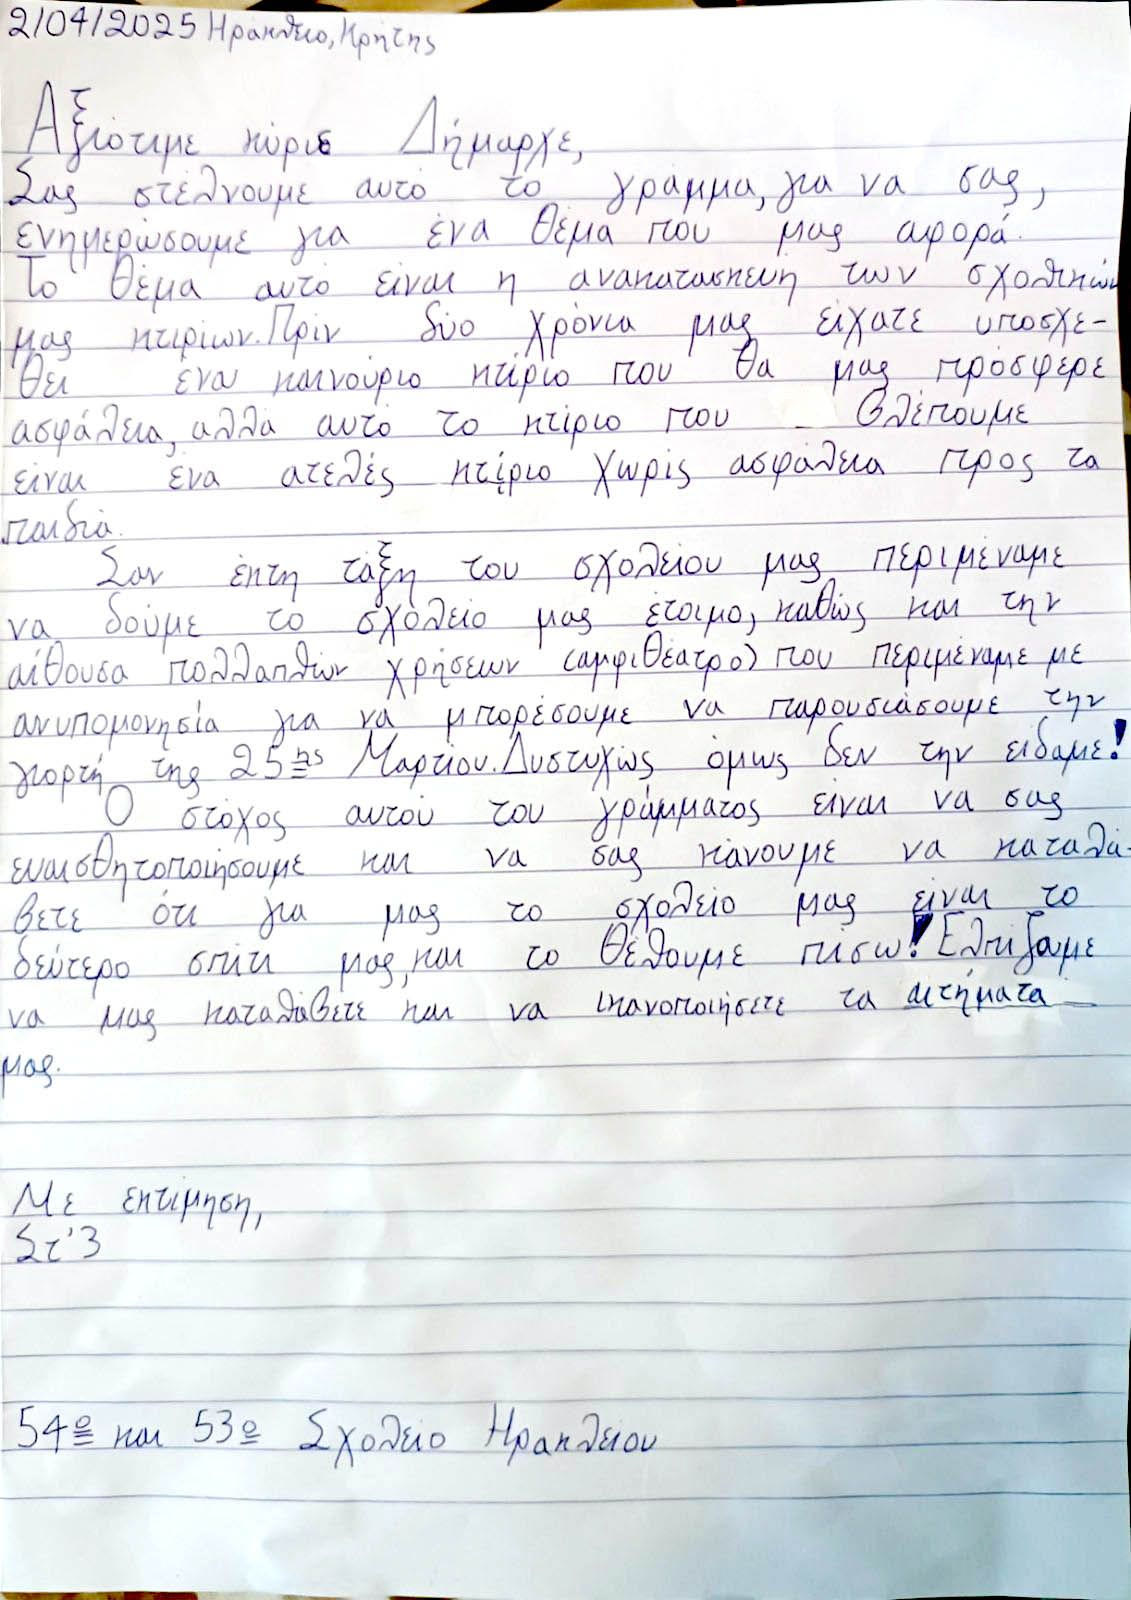 2/04/2025 Ηράκλειο, Κρήτης
Αξιότιμε κύριε Δήμαρχε,
Σας στέλνουμε αυτό το γράμμα, για να σας,
ενημερώσουμε για ένα θέμα που μας αφορά.
Το θέμα αυτό είναι η ανακατασκευή των σχολικών
μας κτιρίων. Πρίν δύο χρόνια μας είχατε υποσχε-
θει ένα καινούριο κτίριο που θα μας πρόσφερε
ασφάλεια, αλλά αυτό το κτίριο που βλέπουμε
είναι ένα ατελές κτίριο χωρίς ασφάλεια προς τα
παιδιά.
Σαν έκτη τάξη του σχολείου μας περιμέναμε
να δούμε το σχολείο μας έτοιμο, καθώς και την
αίθουσα πολλαπλών χρήσεων (αμφιθέατρο) που περιμέναμε με
ανυπομονησία για να μπορέσουμε να παρουσιάσουμε την
γιορτή της 25ης Μαρτίου. Δυστυχώς όμως δεν την είδαμε!
Ο στόχος αυτού του γράμματος είναι να σας
ευαισθητοποιήσουμε και να σας κάνουμε να καταλά-
βετε ότι για μας το σχολείο μας είναι το
δεύτερο σπίτι μας, και το θέλουμε πίσω! Ελπίζαμε
να μας καταλάβετε και να ικανοποιήσετε τα αιτήματα
μας.
Με εκτίμηση,
Στ'3
54ο και 53ο Σχολείο Ηρακλείου